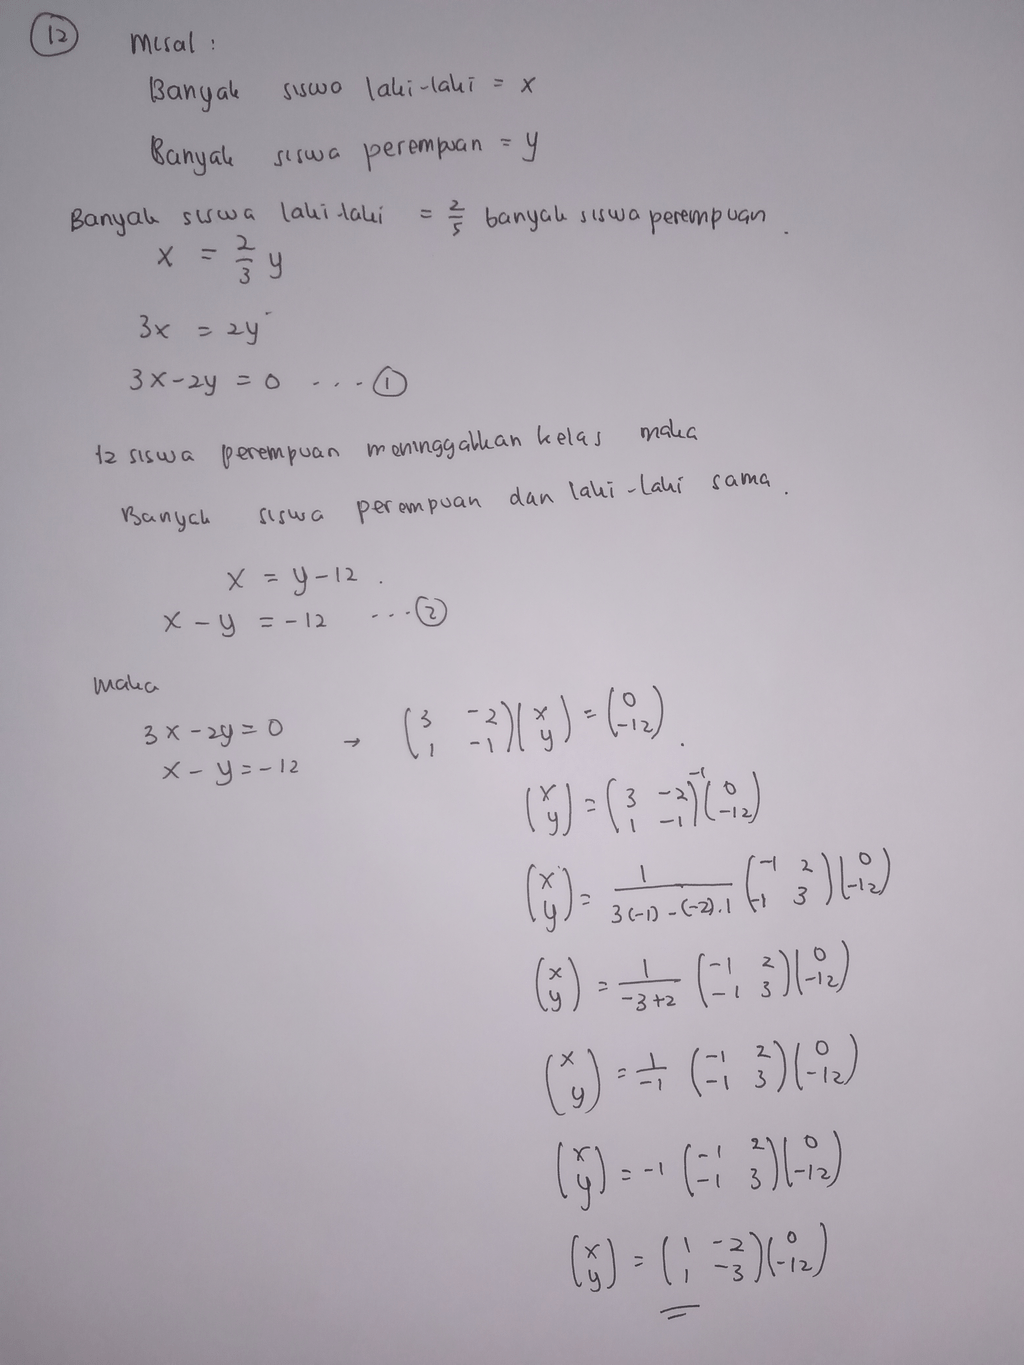 12 Misal :
Banyak siswa laki-laki = x
Banyak siswa perempuan = y
Banyak siswa laki-laki = 2/5 banyak siswa perempuan.
x = 2/3 y
3x = 2y
3x-2y = 0 ... ①
12 siswa perempuan meninggalkan kelas maka
Banyak siswa perempuan dan laki-laki sama.
x = y-12.
x - y = -12 ... ②
maka
3x-2y=0 → (3 -2; 1 -1)(x; y) = (0; -12).
x-y=-12
(x; y) = (3 -2; 1 -1)^-1 (0; -12)
(x; y) = 1/(3(-1)-(-2).1) (-1 2; -1 3)(0; -12)
(x; y) = 1/(-3+2) (-1 2; -1 3)(0; -12)
(x; y) = 1/-1 (-1 2; -1 3)(0; -12)
(x; y) = -1 (-1 2; -1 3)(0; -12)
(x; y) = (1 -2; 1 -3)(0; -12)